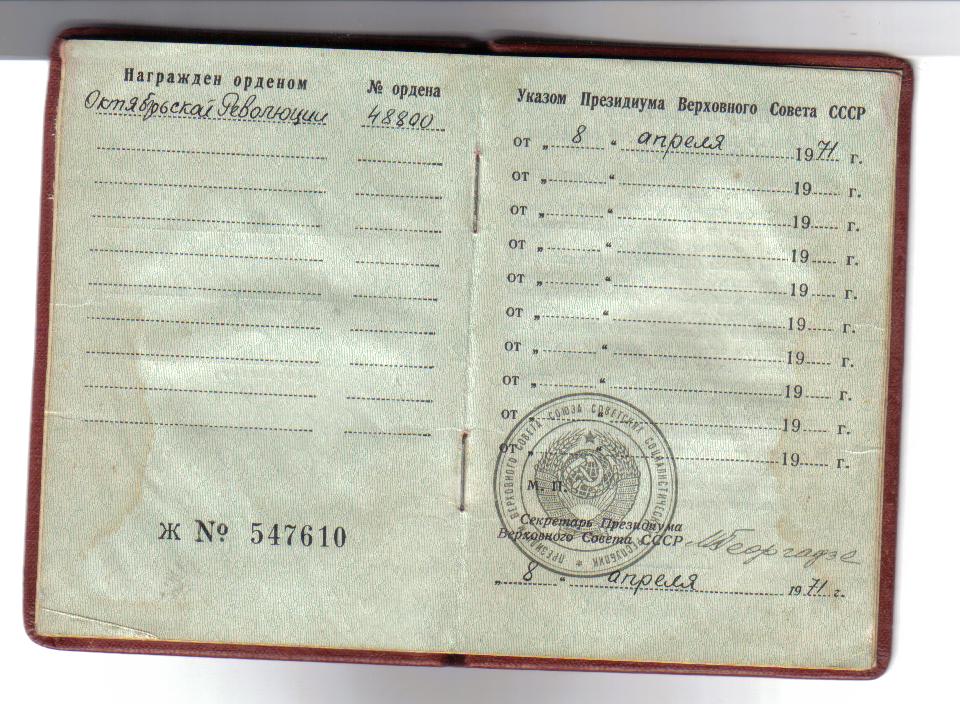 Награжден орденом
№ ордена
Октябрьской Революции
48800
Ж № 547610
Указом Президиума Верховного Совета СССР
от „ 8 “ апреля 1971 г.
от „ “ 19 г.
от „ “ 19 г.
от „ “ 19 г.
от „ “ 19 г.
от „ “ 19 г.
от „ “ 19 г.
от „ “ 19 г.
от „ “ 19 г.
от „ “ 19 г.
М. П.
Секретарь Президиума
Верховного Совета СССР
М Георгадзе
„ 8 “ апреля 1971 г.
ПРЕЗИДИУМ ВЕРХОВНОГО СОВЕТА СОЮЗА СОВЕТСКИХ СОЦИАЛИСТИЧЕСКИХ РЕСПУБЛИК